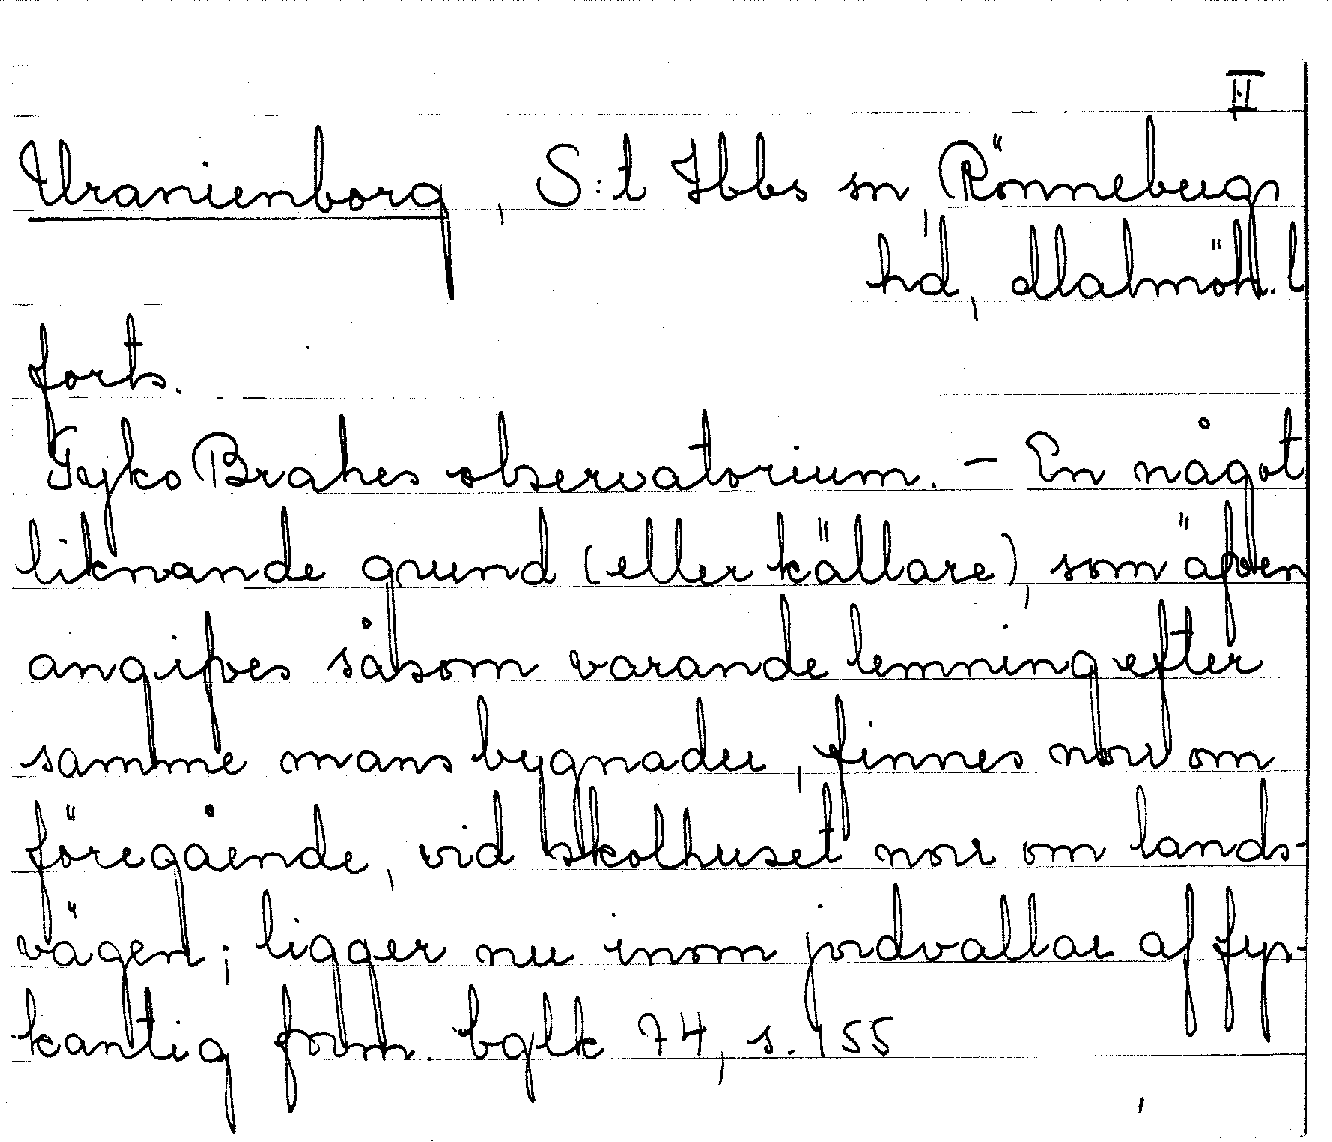 II
Uranienborg, S:t Ibbs sn, Rönnebergs
hd, Malmöh. l
forts.
Tyko Brahes observatorium. - En något
liknande grund (eller källare), som äfven
angifves såsom varande lemning efter
samme mans bygnader, finnes norr om
föregående, vid skolhuset norr om lands-
vägen; ligger nu inom jordvallar af fyr-
kantig form. bglk 74, s. 155